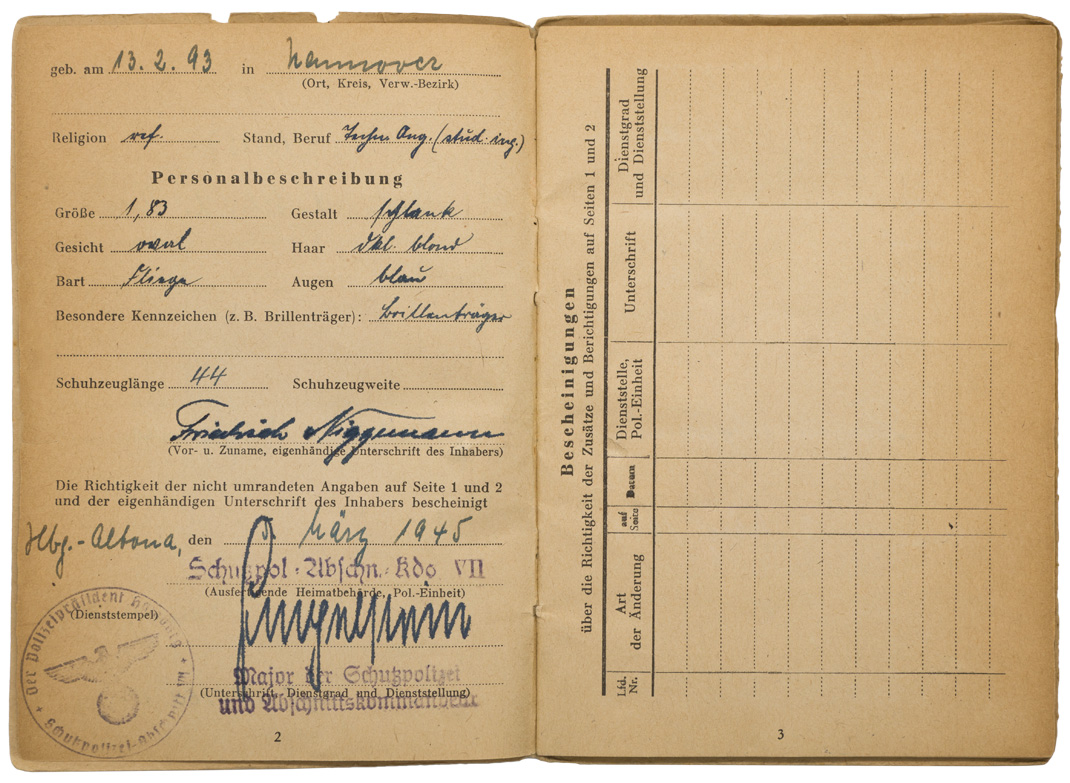 geb. am 13. 2. 93 in Hannover
(Ort, Kreis, Verw.-Bezirk)
Religion ref. Stand, Beruf Techn. Ang. (stud. ing.)
Personalbeschreibung
Größe 1,83 Gestalt schlank
Gesicht oval Haar dkl. blond
Bart Fliege Augen blau
Besondere Kennzeichen (z. B. Brillenträger): Brillenträger
Schuhzeuglänge 44 Schuhzeugweite
Friedrich Niggemann
(Vor- u. Zuname, eigenhändige Unterschrift des Inhabers)
Die Richtigkeit der nicht umrandeten Angaben auf Seite 1 und 2
und der eigenhändigen Unterschrift des Inhabers bescheinigt
Hbg.-Altona, den März 1945
Schutzpol.-Abschn.-Kdo VII
(Ausfertigende Heimatbehörde, Pol.-Einheit)
(Dienststempel)
Der Polizeipräsident Hamburg
Schutzpolizei-Abschnitt VII
Major der Schutzpolizei
(Unterschrift, Dienstgrad und Dienststellung)
und Abschnittskommandeur
2
Bescheinigungen
über die Richtigkeit der Zusätze und Berichtigungen auf Seiten 1 und 2
Lfd.
Nr.
Art
der Änderung
auf
Seite
Datum
Dienststelle,
Pol.-Einheit
Unterschrift
Dienstgrad
und Dienststellung
3